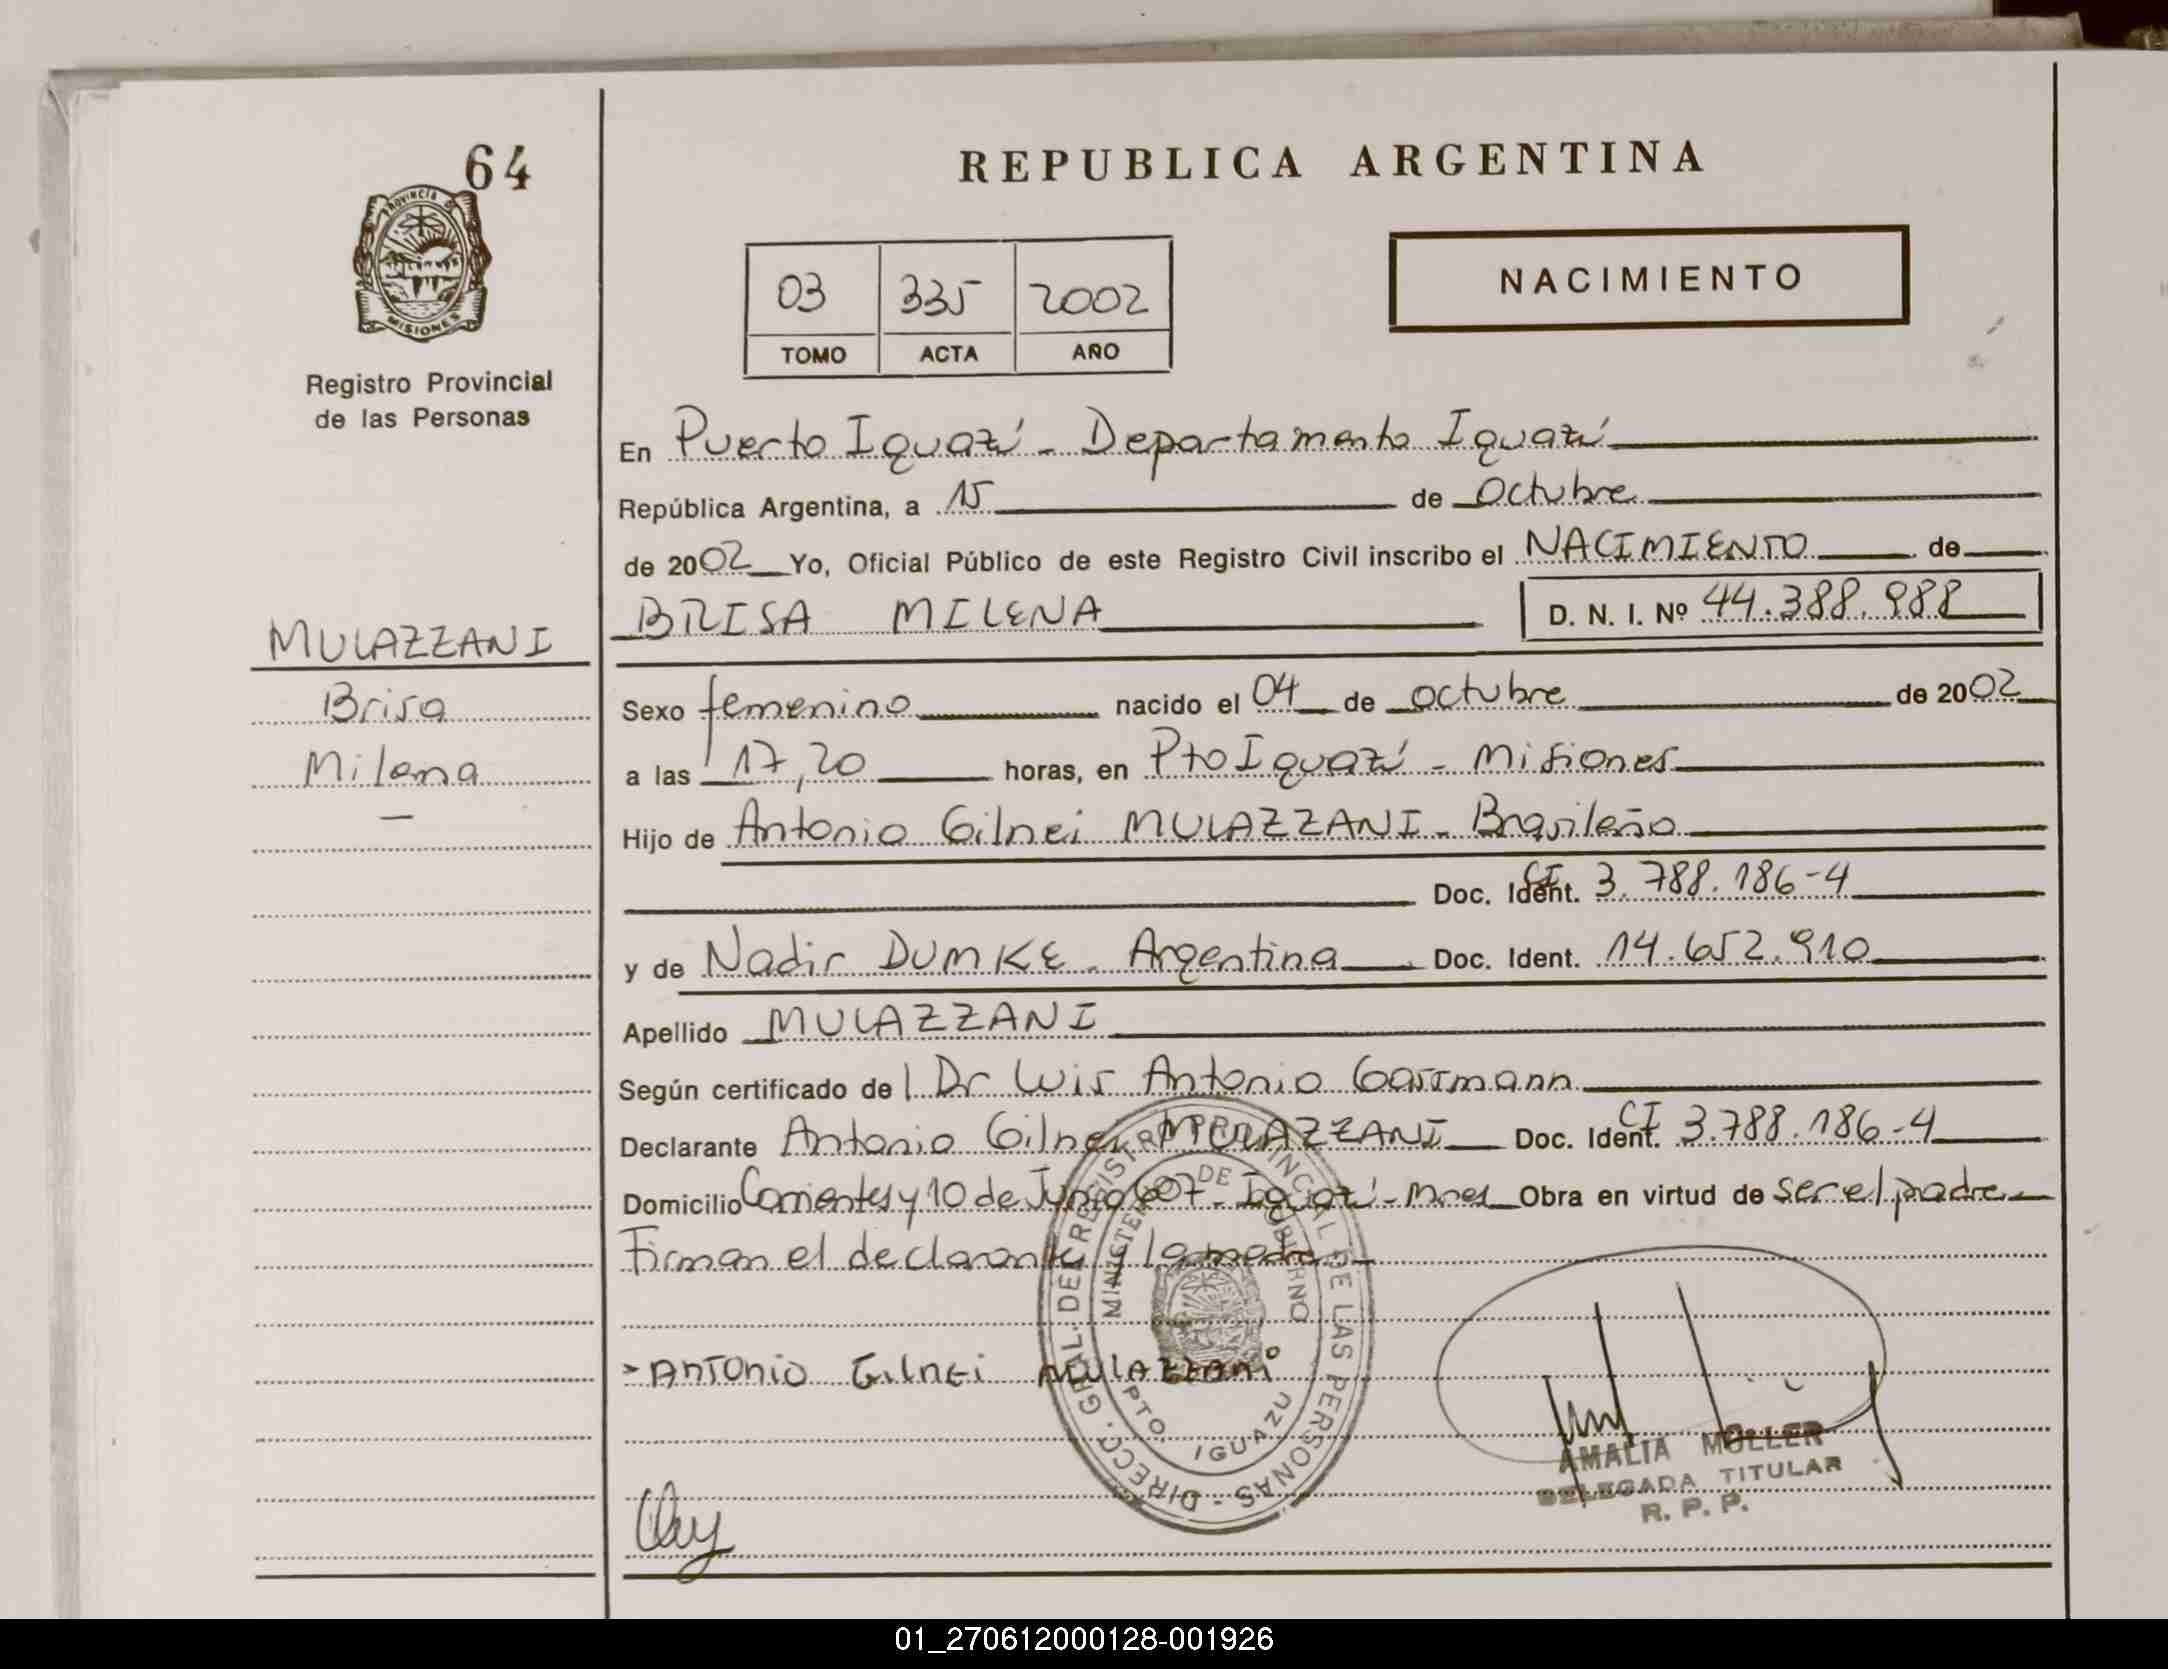 64
PROVINCIA DE
MISIONES
Registro Provincial
de las Personas
REPUBLICA ARGENTINA
03 335 2002
TOMO ACTA AÑO
NACIMIENTO
En Puerto Iguazú - Departamento Iguazú
República Argentina, a 15 de Octubre
de 2002 Yo, Oficial Público de este Registro Civil inscribo el NACIMIENTO de
BRISA MILENA D. N. I. Nº 44.388.988
MULAZZANI
Brisa
Milena
Sexo femenino nacido el 04 de octubre de 2002
a las 17,20 horas, en Pto Iguazú - Misiones
Hijo de Antonio Gilnei MULAZZANI - Brasileño
Doc. Ident. CI 3.788.186-4
y de Nadir DUMKE - Argentina Doc. Ident. 14.652.910
Apellido MULAZZANI
Según certificado de Dr Luis Antonio Gassmann
Declarante Antonio Gilnei MULAZZANI Doc. Ident. CI 3.788.186-4
Domicilio Corrientes y 10 de Junio 607 - Iguazú - Mnes Obra en virtud de ser el padre
Firman el declarante y la madre
ANTONIO GILNEI MULAZZANI
DIRECC. GRAL. DE REGISTRO PROVINCIAL DE LAS PERSONAS -
MINISTERIO DE GOBIERNO
PTO. IGUAZU
AMALIA MULLER
DELEGADA TITULAR
R. P. P.
01_270612000128-001926